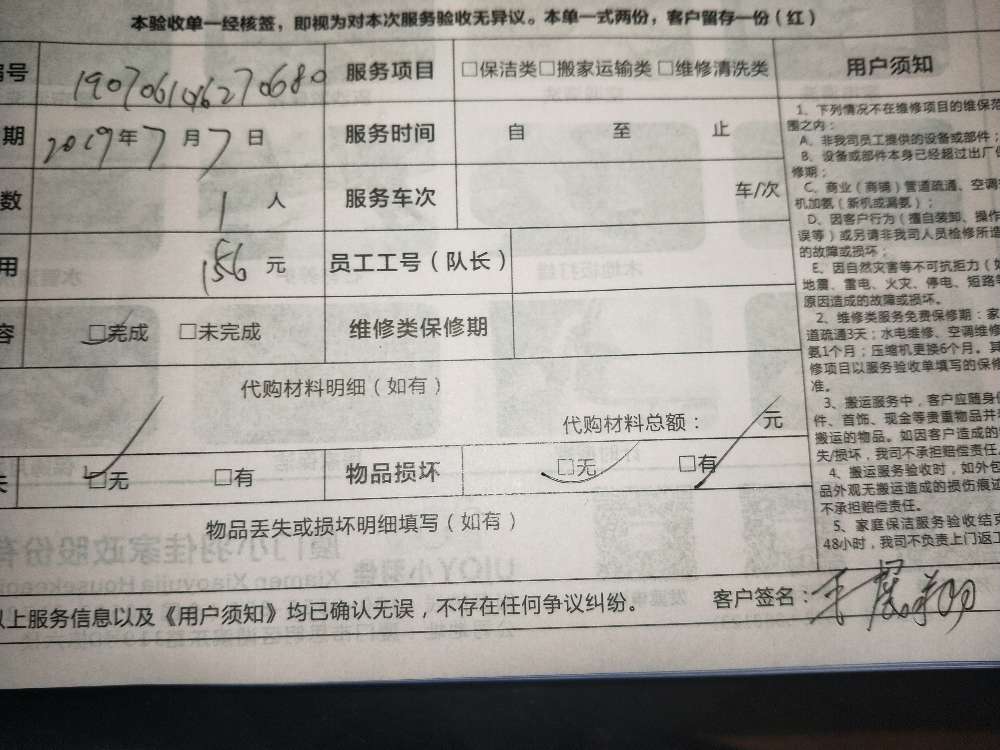 本验收单一经核签，即视为对本次服务验收无异议。本单一式两份，客户留存一份（红）
号 服务项目 □保洁类□搬家运输类 □维修清洗类 用户须知
期 2019年7月7日 服务时间 自 至 止
数 1人 服务车次 车/次
用 156元 员工工号（队长）
容 □完成 □未完成 维修类保修期
代购材料明细（如有）
代购材料总额： 元
□无 □有 物品损坏 □无 □有
物品丢失或损坏明细填写（如有）
以上服务信息以及《用户须知》均已确认无误，不存在任何争议纠纷。 客户签名：
1、下列情况不在维修项目的维保范
围之内：
A、非我司员工提供的设备或部件；
B、设备或部件本身已经超过出厂保
修期；
C、商业（商铺）管道疏通、空调
机加氨（新机或漏氨）；
D、因客户行为（擅自装卸、操作
误等）或另请非我司人员检修所造
的故障或损坏；
E、因自然灾害等不可抗拒力（如
地震、雷电、火灾、停电、短路等
原因造成的故障或损坏。
2、维修类服务免费保修期：家
道疏通3天；水电维修、空调维修
氨1个月；压缩机更换6个月。其
修项目以服务验收单填写的保修
准。
3、搬运服务中，客户应随身保
件、首饰、现金等贵重物品并
搬运的物品。如因客户造成的
失/损坏，我司不承担赔偿责任。
4、搬运服务验收时，如外包
品外观无搬运造成的损伤痕迹
不承担赔偿责任。
5、家庭保洁服务验收结束
48小时，我司不负责上门返工